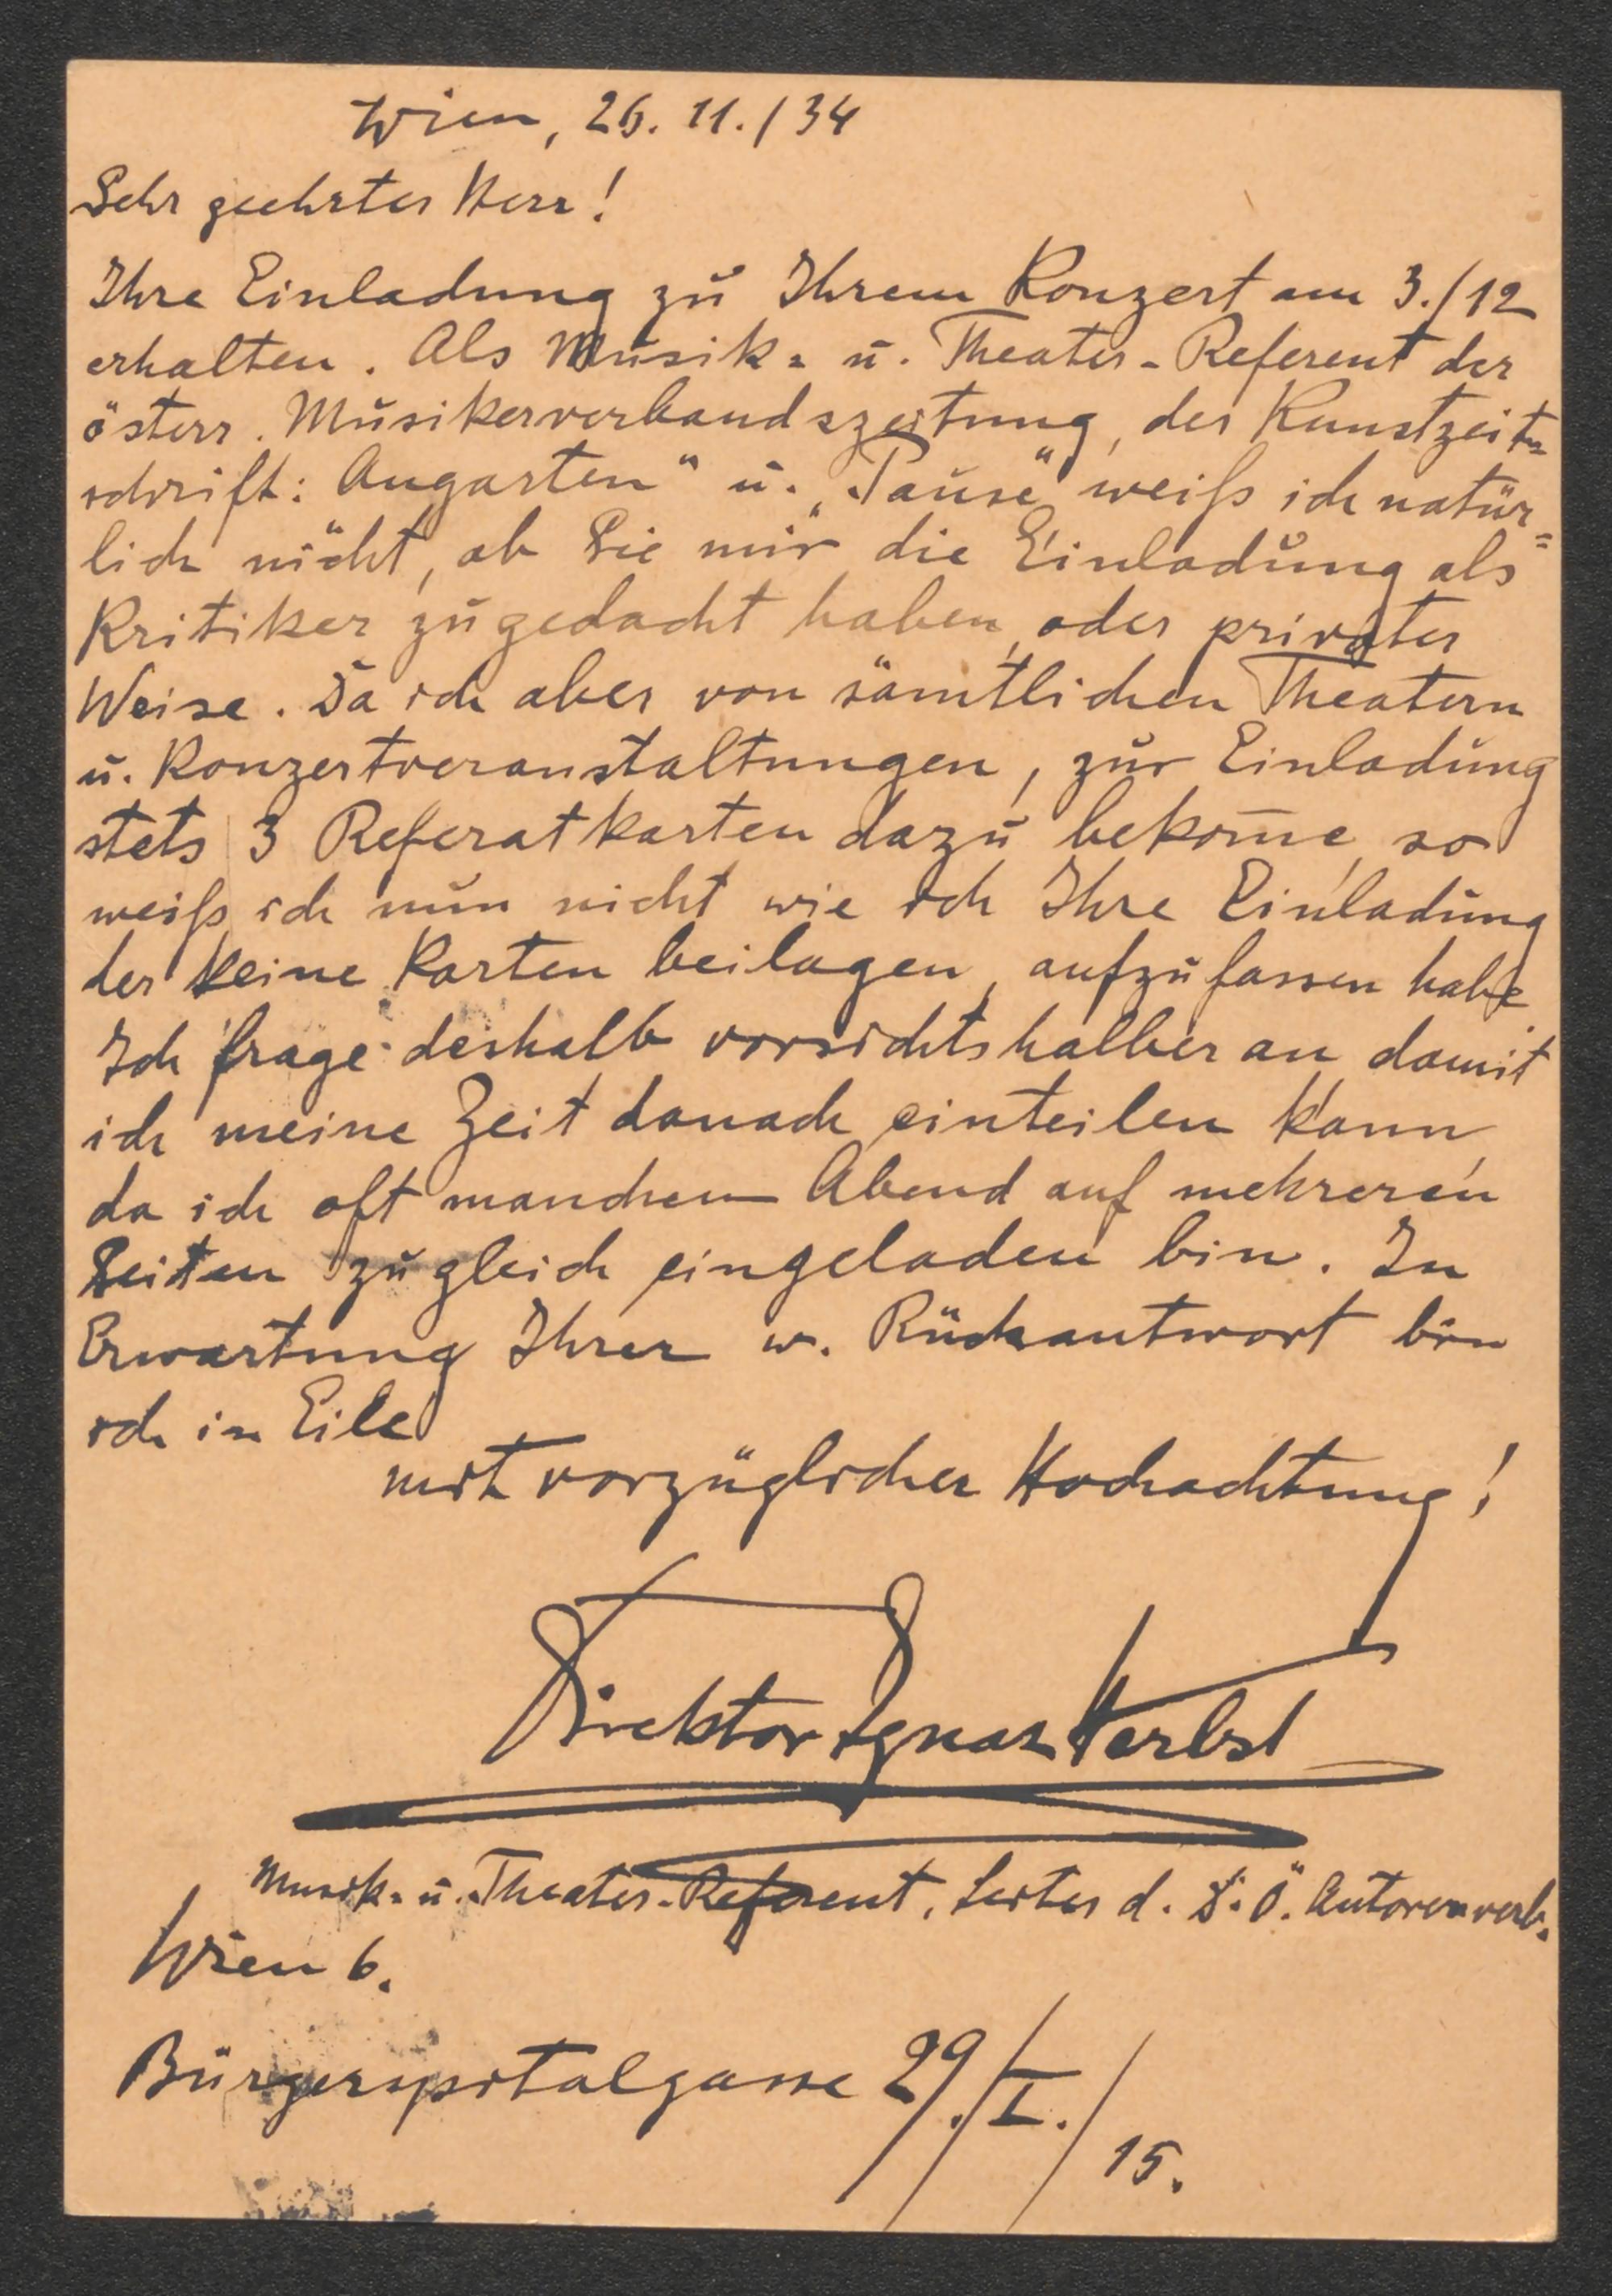 Wien, 26. 11./34
Sehr geehrter Herr!
Ihre Einladung zu Ihrem Konzert am 3./12
erhalten. Als Musik= u. Theater-Referent der
österr. Musikerverbandszeitung, der Kunstzeit=
schrift: „Augarten" u. „Pause" weiß ich natür=
lich nicht, ob Sie mir die Einladung als
Kritiker zugedacht haben, oder privater
Weise. Da ich aber von sämtlichen Theatern
u. Konzertveranstaltungen, zur Einladung
stets 3 Referatkarten dazu bekom̅e, so
weiß ich nun nicht wie ich Ihre Einladung
der keine Karten beilagen, aufzufassen habe.
Ich frage deshalb vorsichtshalber an damit
ich meine Zeit danach einteilen kann,
da ich oft manchem Abend auf mehreren
Seiten zugleich eingeladen bin. In
Erwartung Ihrer w. Rückantwort bin
ich in Eile
mit vorzüglicher Hochachtung!
Direktor Ignaz Herbst
Musik= u. Theater-Referent, Leiter d. D. Ö. Autorenverb.
Wien 6.
Bürgerspitalgasse 29./I./15.